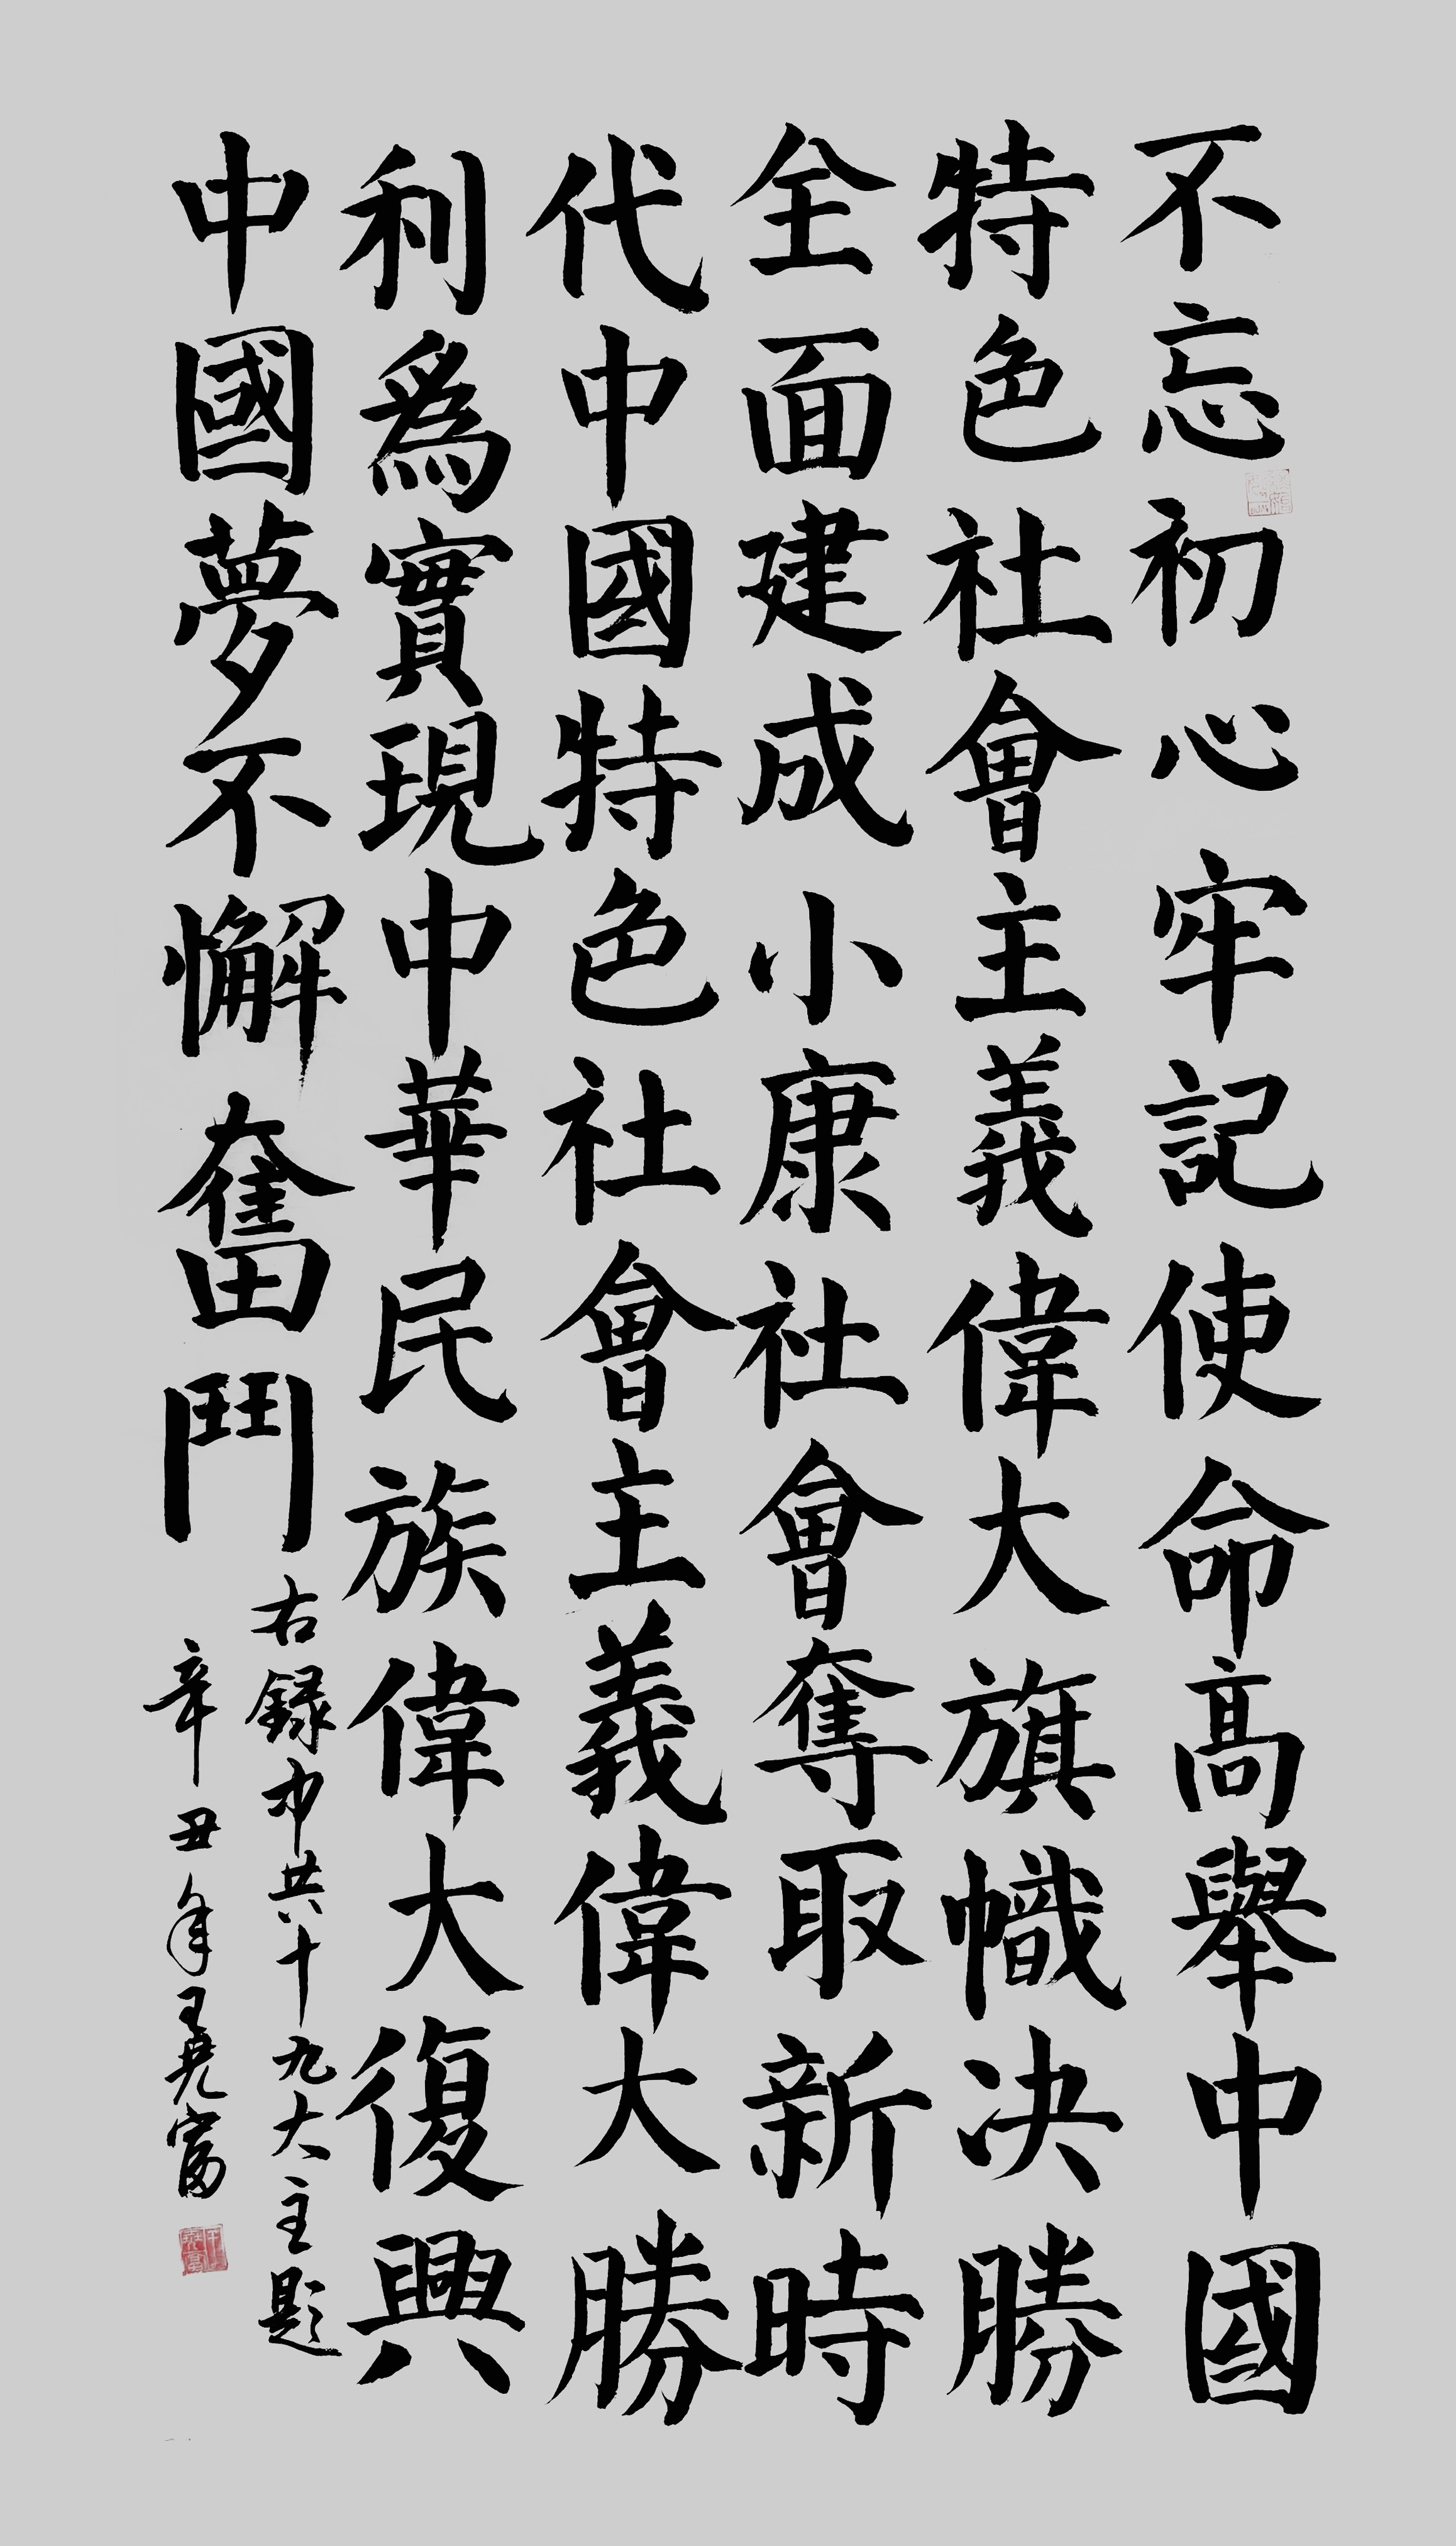 不忘初心牢記使命高舉中國
特色社會主義偉大旗幟決勝
全面建成小康社會奪取新時
代中國特色社會主義偉大勝
利為實現中華民族偉大復興
中國夢不懈奮鬥
右録中共十九大主題
辛丑年王堯富